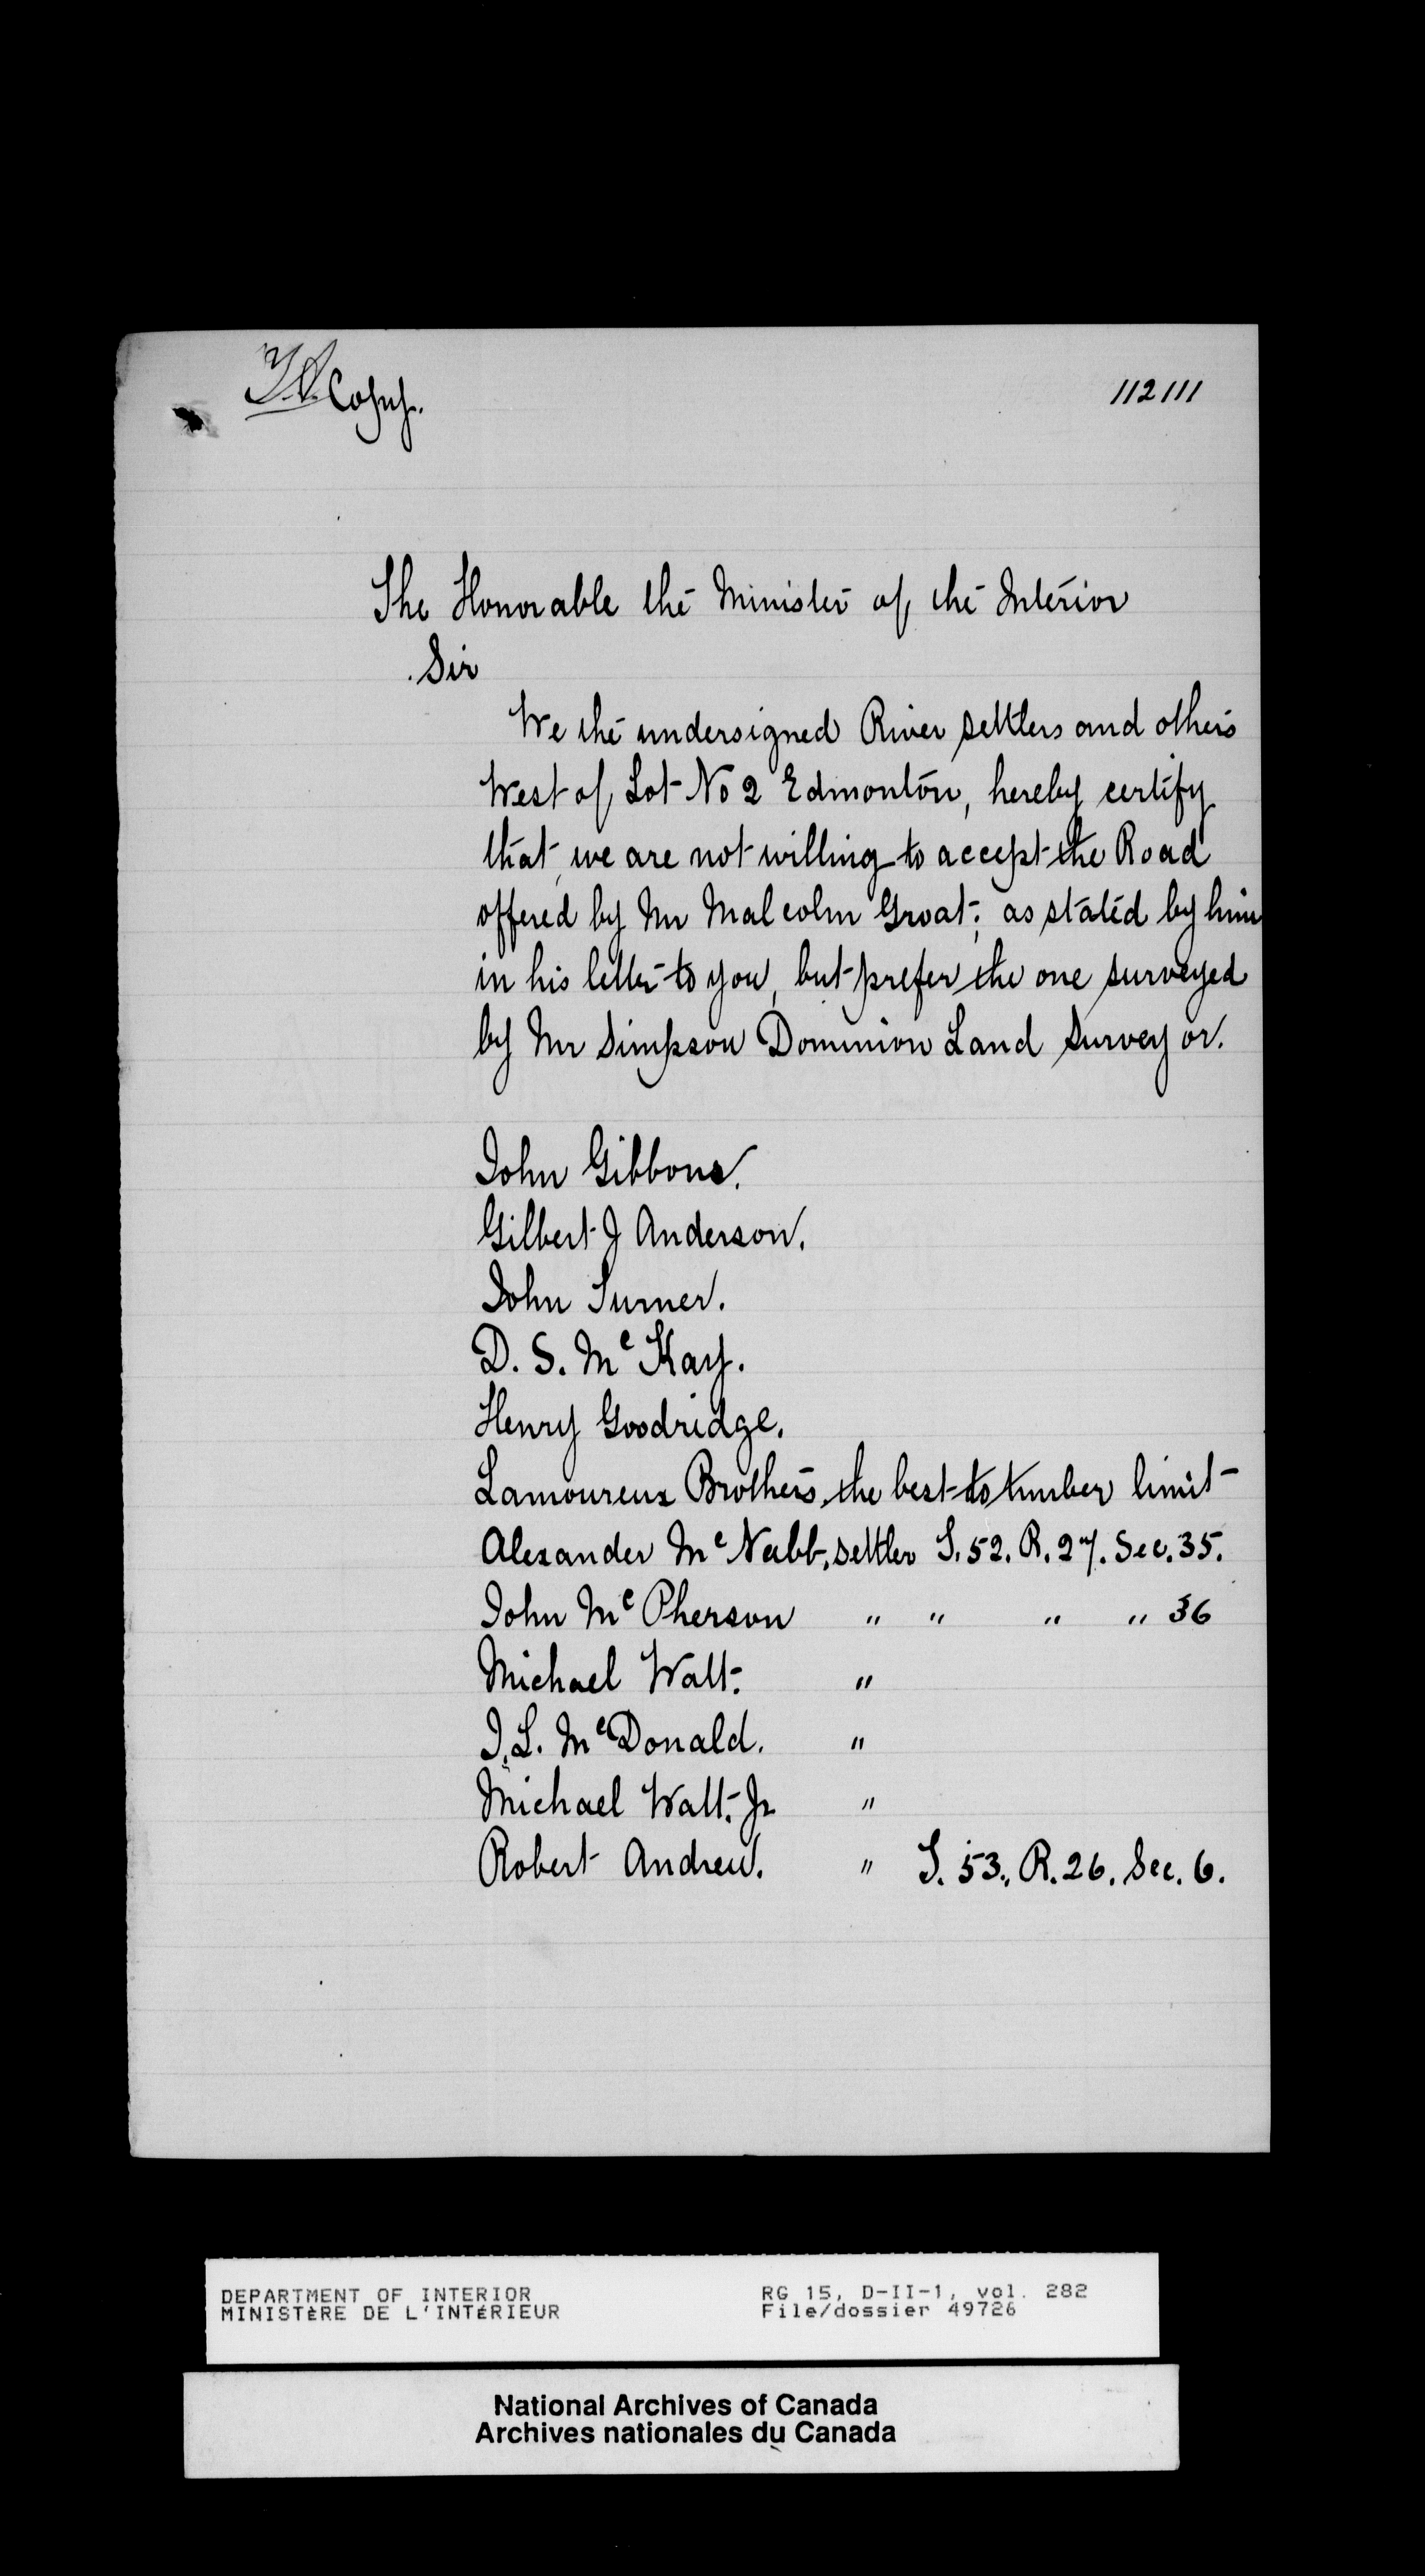 Copy.
112111
The Honorable the Minister of the Interior
Sir
We the undersigned River settlers and others
West of Lot No 2 Edmonton, hereby certify
that, we are not willing to accept the Road
offered by Mr Malcolm Groat; as stated by him
in his letter to you, but prefer the one surveyed
by Mr Simpson Dominion Land Surveyor.
John Gibbons.
Gilbert J Anderson.
John Turner.
D. S. McKay.
Henry Goodridge.
Lamoureux Brothers, the best to timber limit
Alexander McNabb, settler T. 52. R. 27. Sec. 35.
John McPherson " " " " 36
Michael Walt. "
J. L. McDonald. "
Michael Walt. Jr "
Robert Andrew. " T. 53., R. 26. Sec. 6.
DEPARTMENT OF INTERIOR RG 15, D-II-1, vol. 282
MINISTÈRE DE L'INTÉRIEUR File/dossier 49726
National Archives of Canada
Archives nationales du Canada